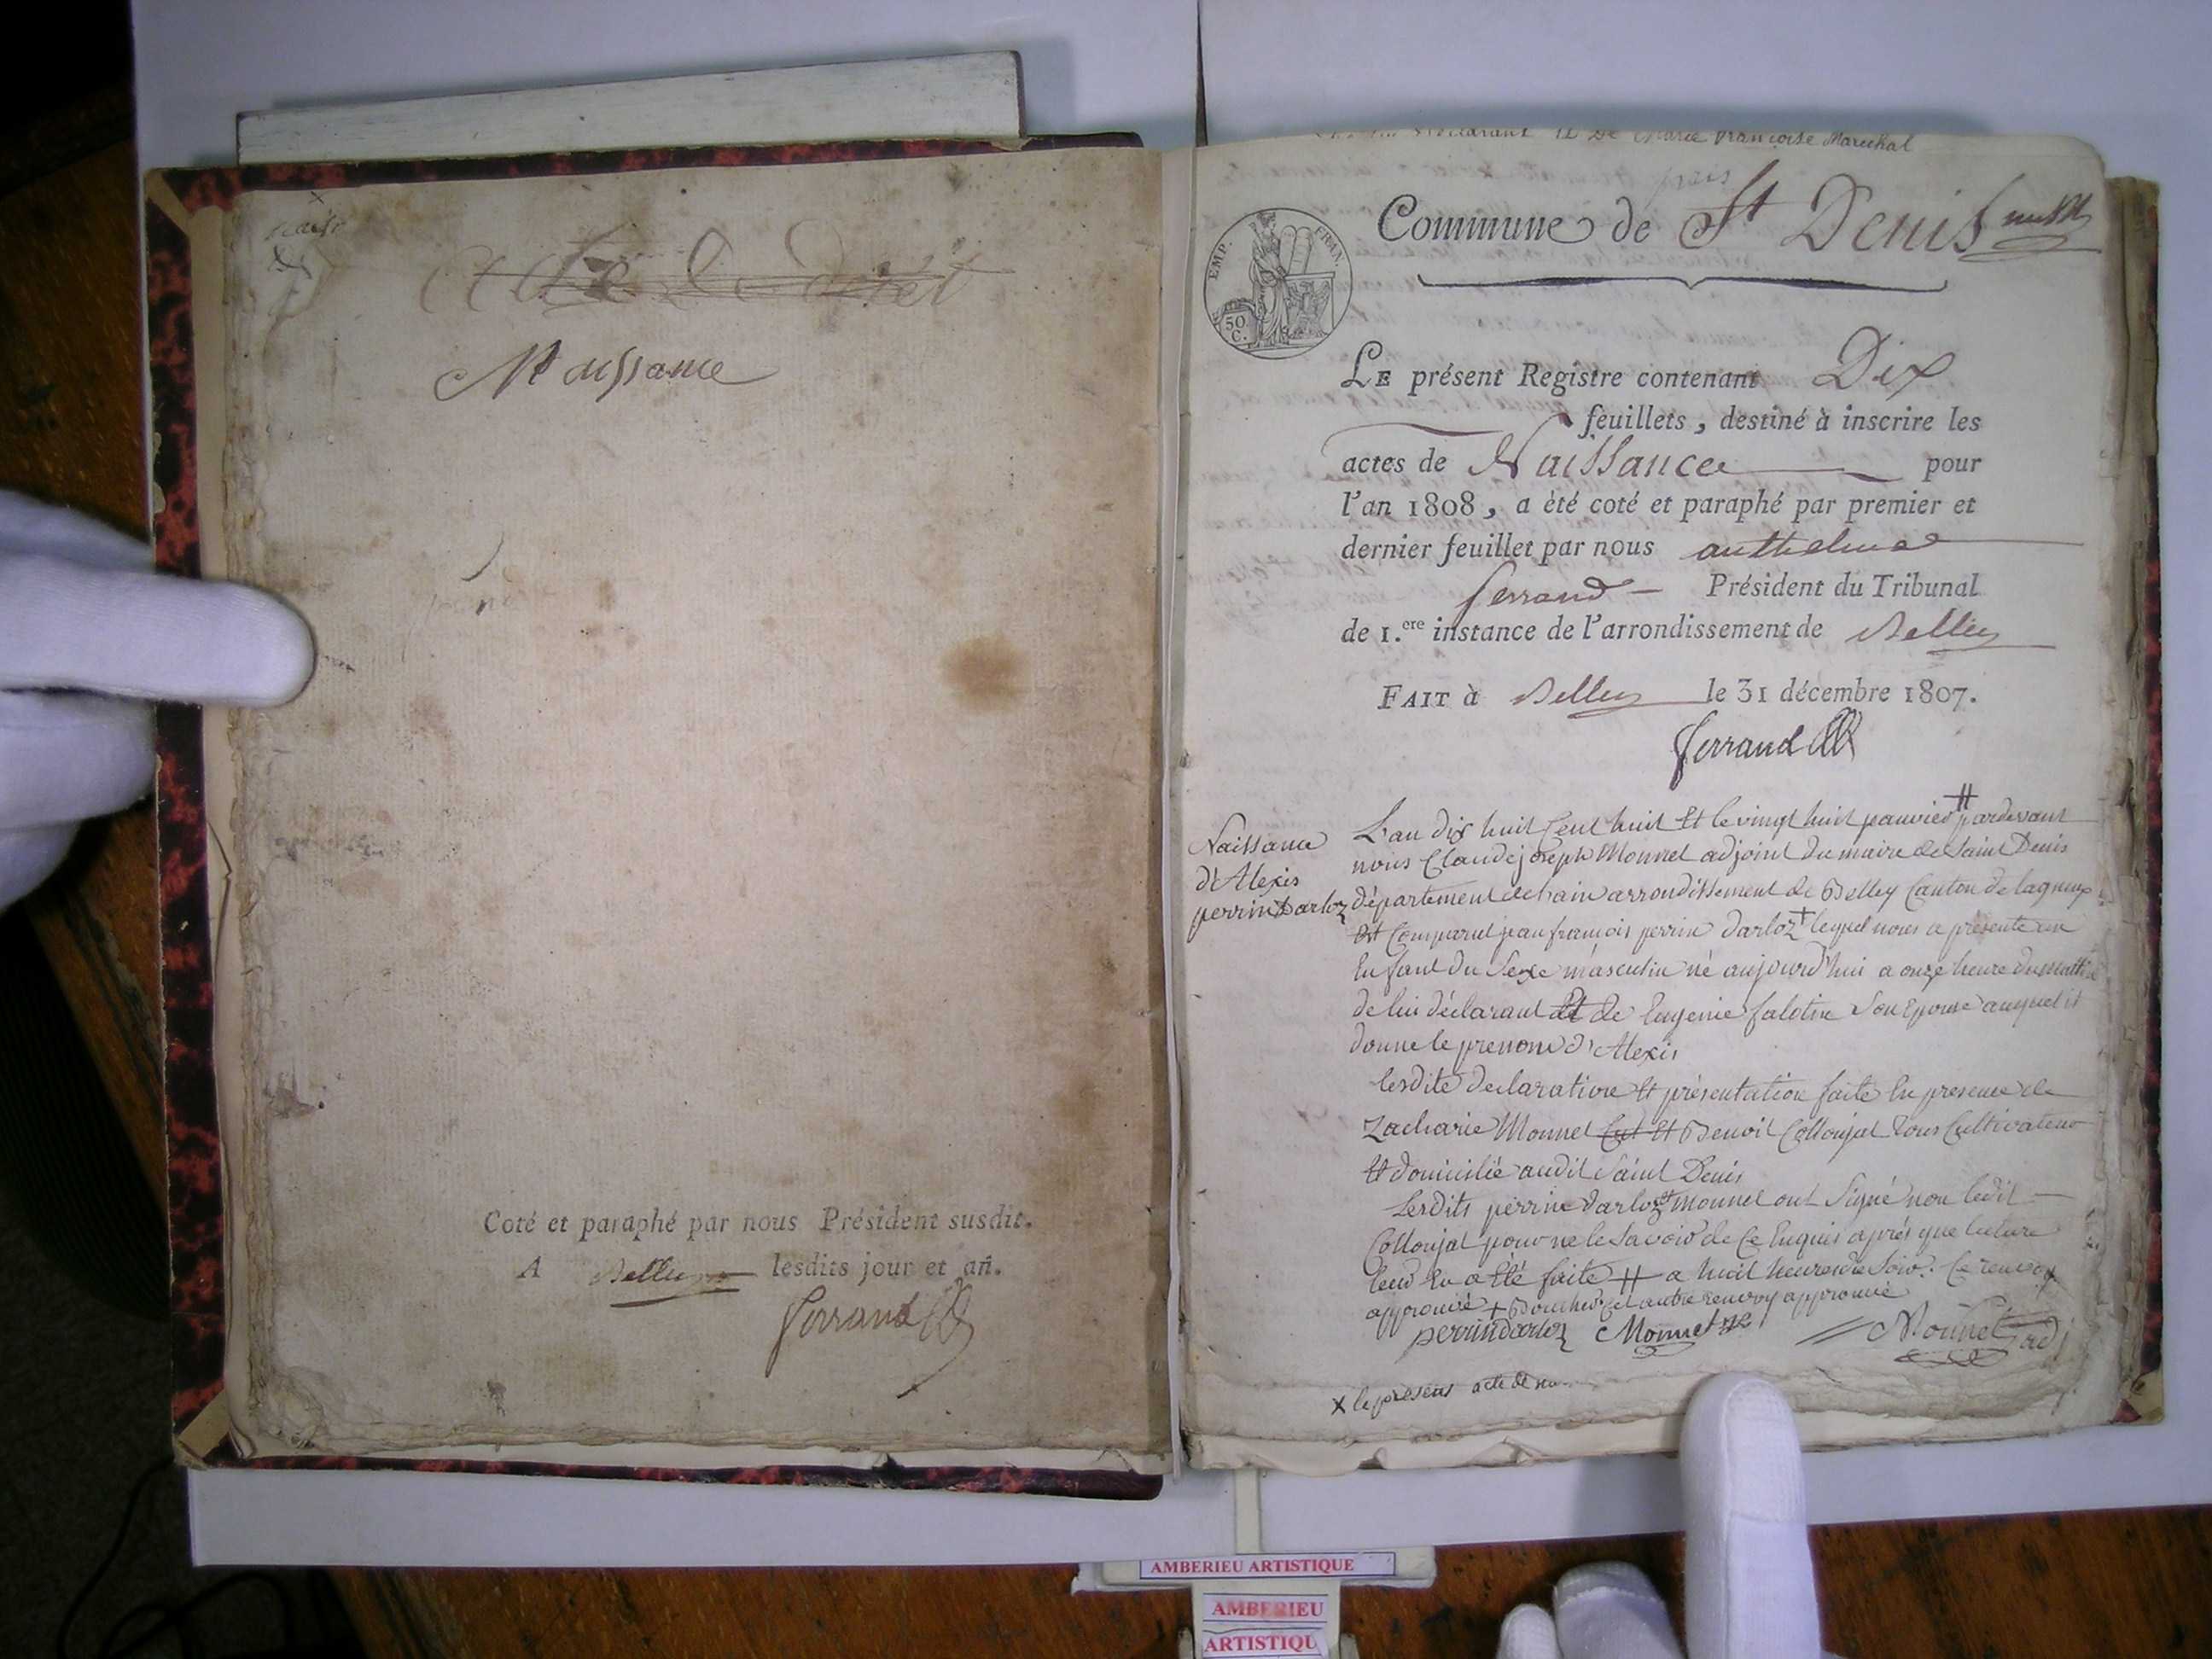 Acte de décet
Naissance
Coté et paraphé par nous Président susdit.
A Belley lesdits jour et an.
Ferrand
Marie Françoise Marechal
Commune de St Denis
EMP. FRAN.
50 C.
LE présent Registre contenant Dix
feuillets, destiné à inscrire les
actes de Naissance pour
l'an 1808, a été coté et paraphé par premier et
dernier feuillet par nous anthelme
ferrand Président du Tribunal
de 1.ere instance de l'arrondissement de Belley
FAIT à Belley le 31 décembre 1807.
Ferrand
Naissance
d'Alexis
perrin Darloz
L'an dix huit Cent huit Et le vingt huit janvier # pardevant
nous Claude joseph Monnet adjoint du maire de Saint Denis
département de l'ain arrondissement de Belley Canton de lagnieu
Est Comparut jean françois perrin Darloz + lequel nous a présenté un
Enfant du Sexe masculin né aujourd'hui a onze heure du matin
de lui déclarant Et de Eugenie falotin Son Epouse auquel il
donne le prenom d'Alexis
lesdite declaration Et présentation faite En presence de
Zacharie Monnet Cul Et Benoit Collonjat tous Cultivateur
Et domicilié audit Saint Denis
Lesdits perrin Darloz et Monnet ont Signé non ledit
Collonjat pour ne le Savoir de Ce Enquis après que lecture
leur En a Eté faite # a huit heure du Soir. Ce renvoy
approuvé + Boucher Cet autre renvoy approuvé
perrindarloz Monnet Monnet adj
X le present acte de
AMBERIEU ARTISTIQUE
AMBERIEU
ARTISTIQU